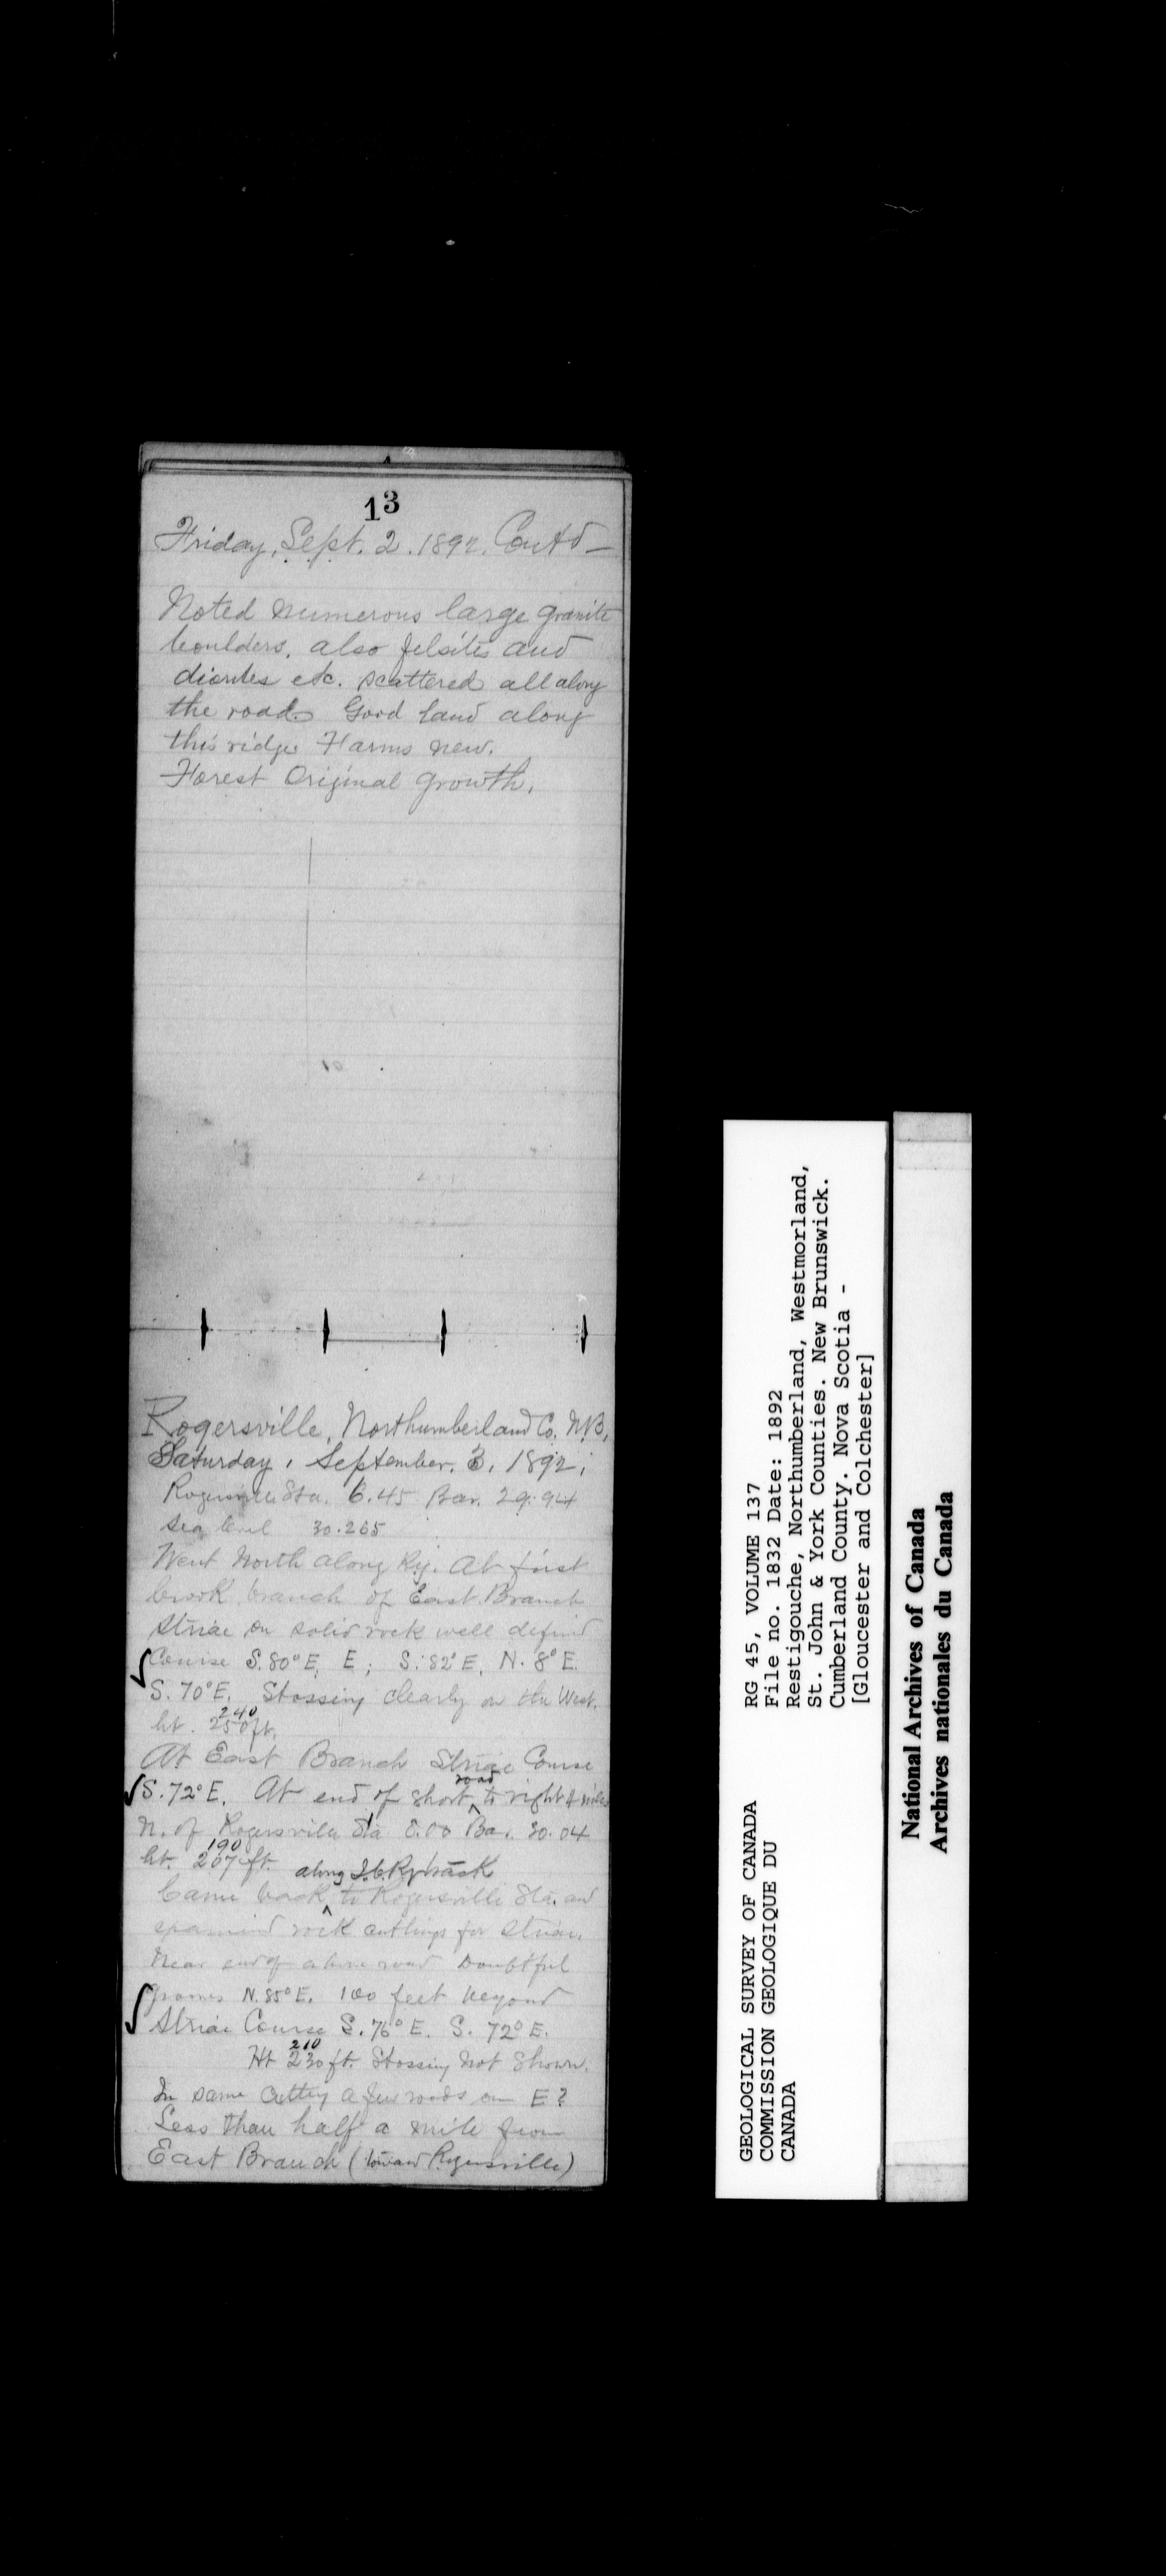 13
Friday, Sept. 2. 1892. Contd —
Noted numerous large granite
boulders, also felsites and
diorites etc. scattered all along
the road. Good land along
this ridge Farms new.
Forest Original growth.
Rogersville, Northumberland Co. N.B.
Saturday, September. 3. 1892.
Rogersville Sta. 6.45 Bar. 29.94
Sea level 30.265
Went North along Ry. At first
brook branch of East Branch
Striae on solid rock well defined
Course S.80°E, E; S.82°E, N. 8°E.
S. 70°E. Stossing clearly on the West.
240
ht. 250 ft.
At East Branch Striae Course
road
S. 72°E. At end of short ^ to right 4 miles
N. of Rogersville Sta 8.00 Bar. 30.04
190
ht. 207 ft. along I.C.Ry track
Came back ^ to Rogersville Sta. and
examined rock cuttings for striae.
Near end of above road Doubtful
grooves N.85°E. 100 feet beyond
Striae Course S. 76° E. S. 72° E.
210
Ht 230 ft. Stossing not shown.
In same cutting a few rods on E?
Less than half a mile from
East Branch (toward Rogersville)
GEOLOGICAL SURVEY OF CANADA
COMMISSION GEOLOGIQUE DU
CANADA
RG 45, VOLUME 137
File no. 1832 Date: 1892
Restigouche, Northumberland, Westmorland,
St. John & York Counties. New Brunswick.
Cumberland County. Nova Scotia -
[Gloucester and Colchester]
National Archives of Canada
Archives nationales du Canada